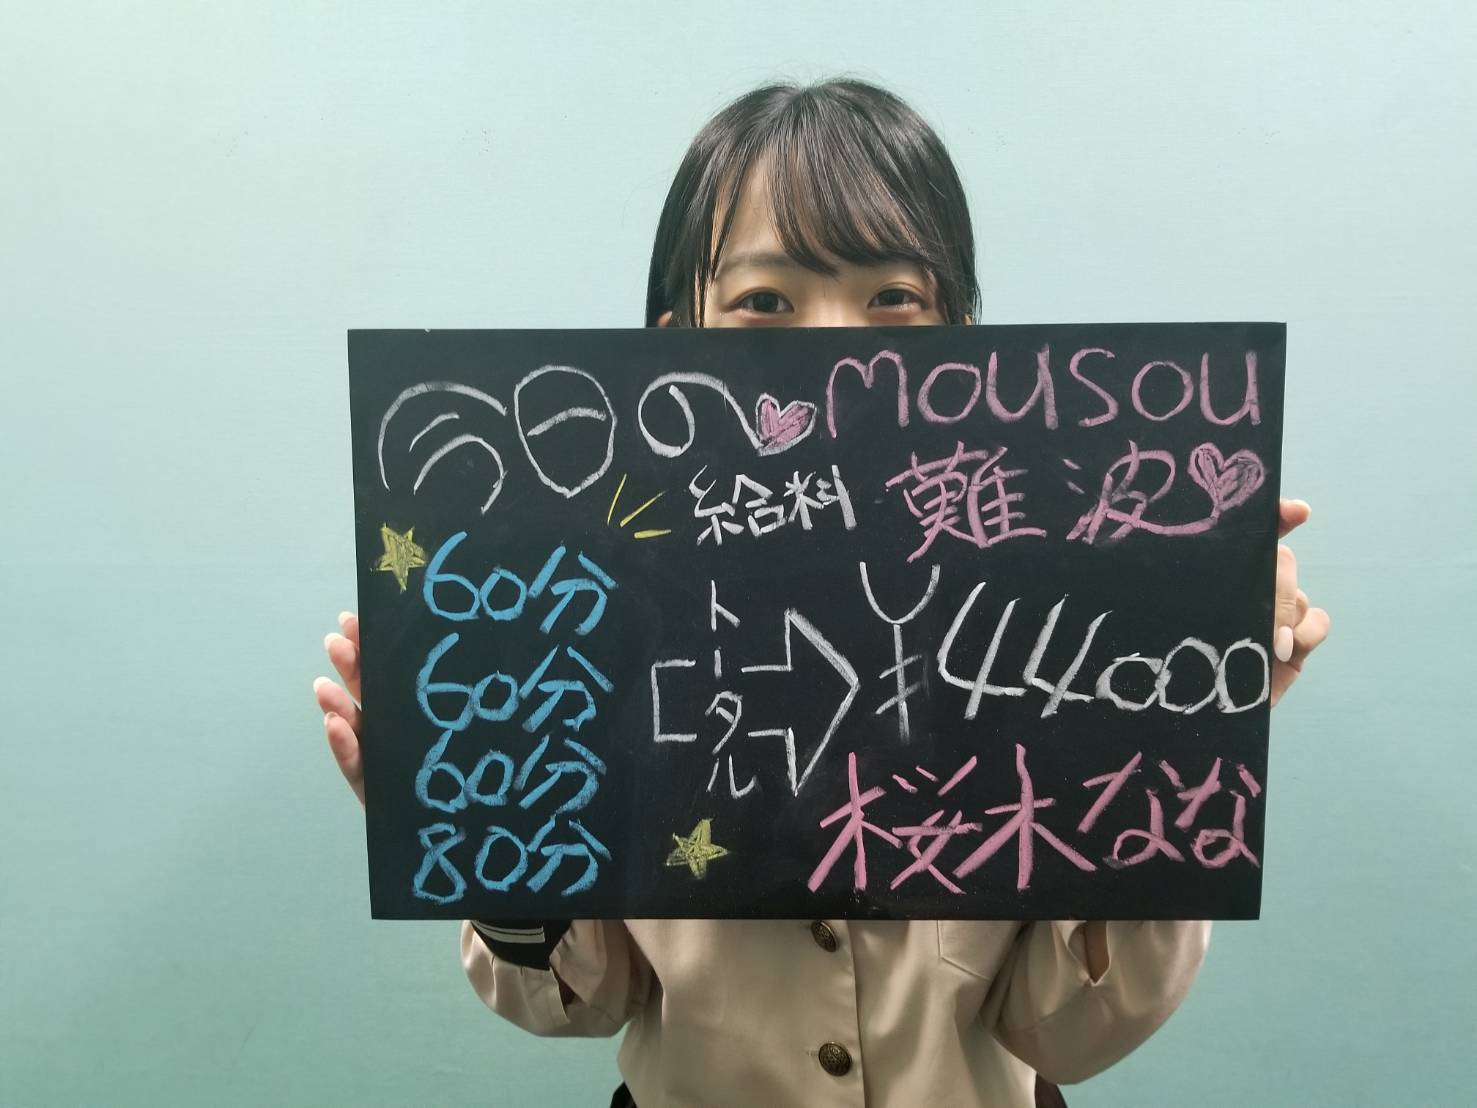 今日の mousou
給料 難波
60分
60分
60分
80分
トータル
¥44000
桜木なな